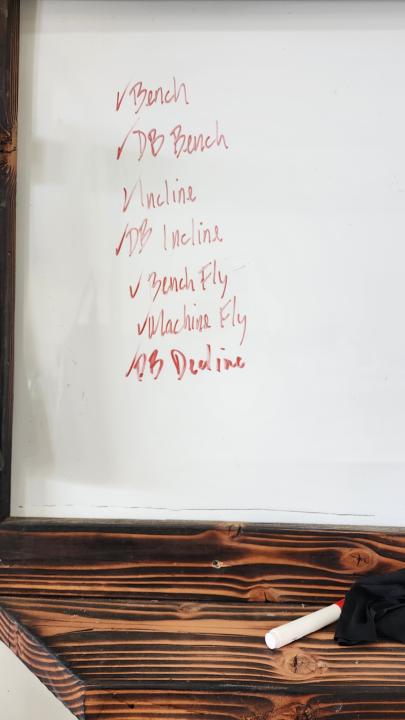 ✓Bench
✓DB Bench
✓Incline
✓DB Incline
✓Bench Fly
✓Machine Fly
✓DB Decline